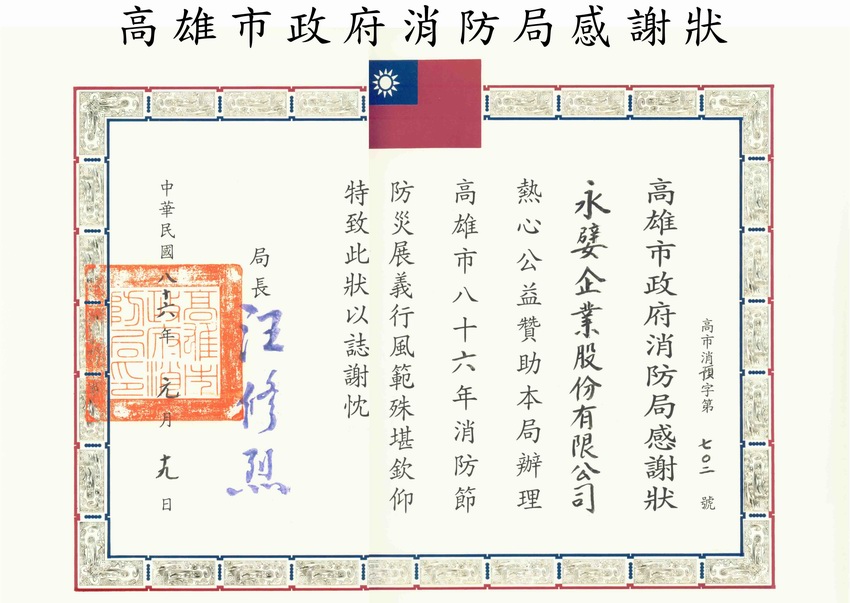 高雄市政府消防局感謝狀
高市消預字第七〇二號
高雄市政府消防局感謝狀
永嬖企業股份有限公司
熱心公益贊助本局辦理
高雄市八十六年消防節
防災展義行風範殊堪欽仰
特致此狀以誌謝忱
局長汪修烈
中華民國八十六年元月十九日
高雄市
政府消
防局印